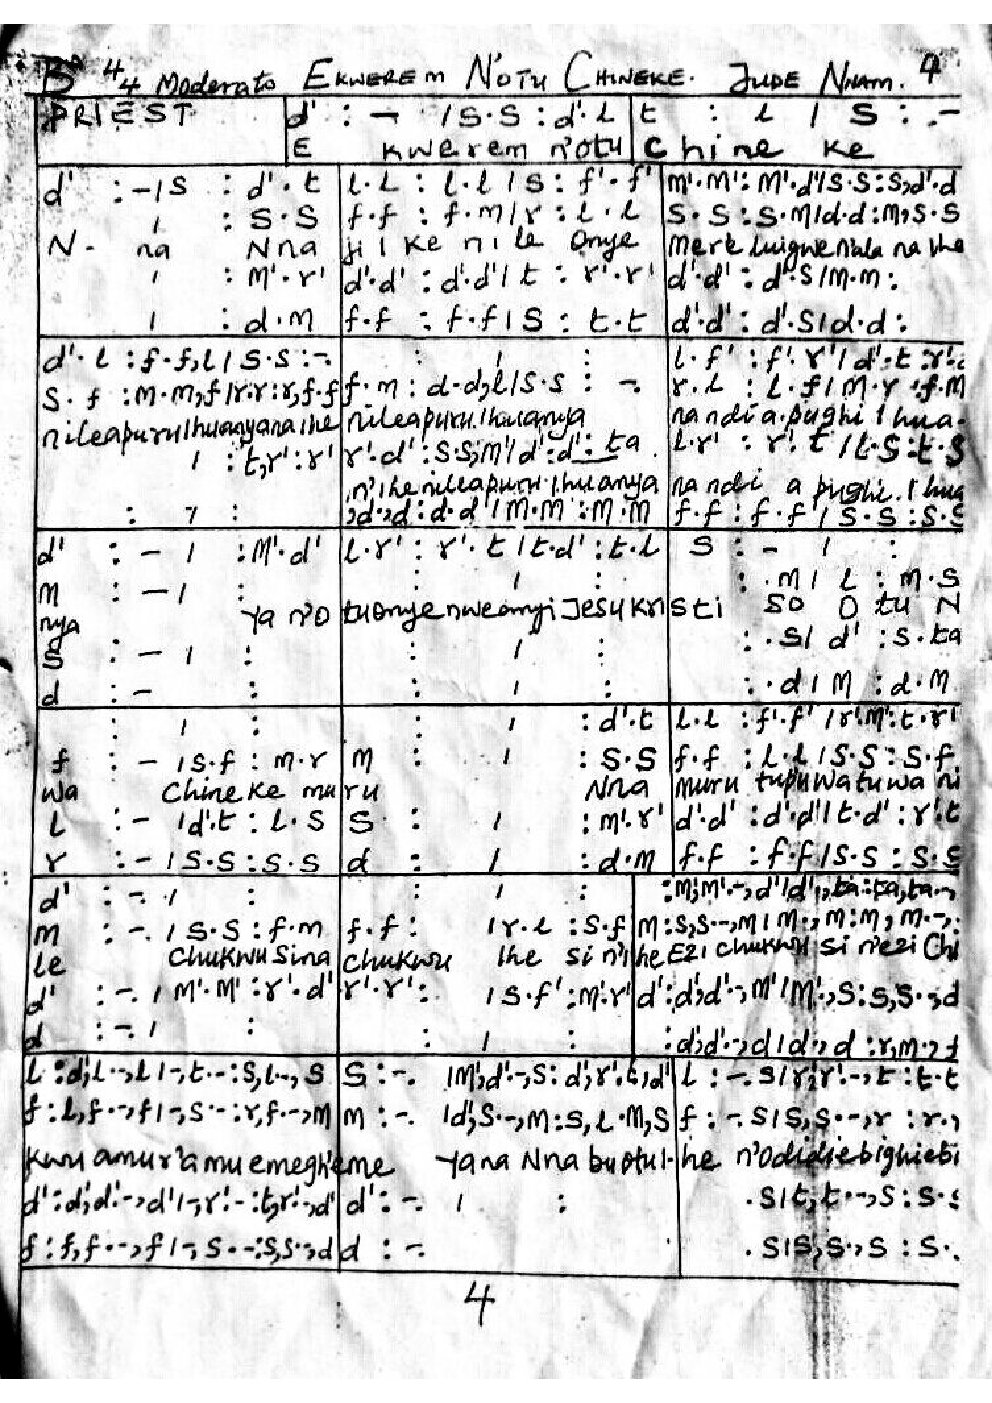 B 4/4 Moderato EKWEREM N'OTU CHINEKE. JUDE NNAM. 9
PRIEST d' : - / S.S : d'.L t : L / S : .-
E kwerem n'otu Chi ne ke
d' : - / S : d'.t L.L : L.L / S : f'.f' m'.m' : m'.d' / S.S : S,d'.d
/ : S.S f.f : f.m / r : L.L S.S : S.M / d.d : M,S.S
N- na Nna ji I ke ni le Onye Mere luigwe n'ala na ihe
/ : M'.r' d'.d' : d'.d' / t : r'.r' d'.d' : d'.S / M.M :
/ : d.M f.f : f.f / S : t.t d'.d' : d'.S / d.d :
d'.L : f.f,L / S.S : -. : / : L.f' : f'.r' / d'.t : r'.
S.f : M.M,f / r.r : r,f.f f.m : d.d,L / S.S : -. r.L : L.f / M.r : f.M
nileapuru Ihuanyana ihe nileapuru Ihuanya na ndi a pughi I hua-
/ : t,r' : r' r'.d' : S.S,M' / d' : d' : ta L.r' : r'.t / L.S : t.S
n'ihe nileapuru Ihuanya na ndi a pughi I hua
: / : ,d.,d : d.d / M.M : M.M f.f : f.f / S.S : S.S
d' : - / : M'.d' L.r' : r'.t / t.d' : t.L S : - / :
M : - / : : / : : .M / L : M.S
nya Ya n'o tuonye nweanyi Jesu Kri sti So O tu N
S : - / : : / : : .S / d' : S.ta
d : - : : / : : .d / M : d.M
: / : : / : d'.t L.L : f'.f' / r'.M' : t.r'
f : - / S.f : M.r M : / : S.S f.f : L.L / S.S : S.f
wa Chineke mu ru Nna muru tupu uwatuwa ni
L : - / d'.t : L.S S : / : m'.r' d'.d' : d'.d' / t.d' : r'.t
r : - / S.S : S.S d : / : d.M f.f : f.f / S.S : S.S
d' : -. / : : / : : M',M'.-,d' / d'.,ta : ta,ta.-,
M : -. / S.S : f.m f.f : / r.L : S.f M : S,S.-,M / M.,M : M,M.-,
le Chukwu Sina Chukwu Ihe si n'ihe Ezi Chukwu Si n'ezi Ch
d' : -. / M'.M' : r'.d' r'.r' : / S.f' : M'.r' d' : d',d'.-,M' / M'.,S : S,S.-,d
d : -. / : : / : : d,d.-,d / d.,d : r,M.-,f
L : d',L.-,L / -,t.- : S,L.-,S S : -. / M',d'.-,S : d',r'.t,d' L : -. S / r',r'.-,t : t.t
f : L,f.-,f / -,S.- : r,f.-,M M : -. / d',S.-,M : S,L.M,S f : -. S / S,S.-,r : r.,
kwu amur'amu emegh'eme Ya na Nna bu otu I- he n'Odidiebighiebi
d' : d',d'.-,d' / -,r'.- : t,r'.-,d' d' : -. / : .S / t,t.-,S : S.S
f : f,f.-,f / -,S.- : S,S.-,d d : -. .S / S,S.-,S : S.
4